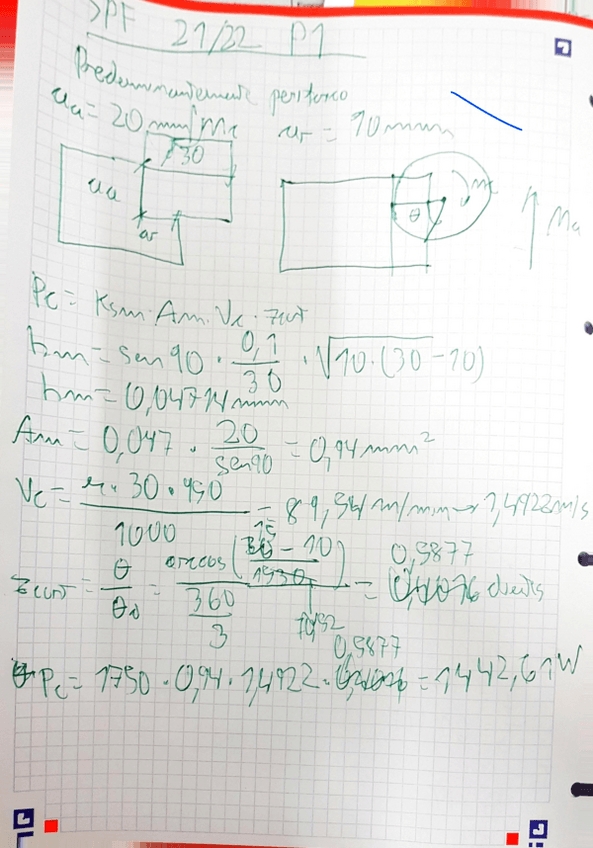 SPF 21/22 P1
Predominantemente periférico
aa = 20 mm
ar = 10 mm
30
aa
ar
θ
Pc = Ksm · Am · Vc · zcort
hm = sen 90 · 0,1/30 · √10·(30-10)
hm = 0,04714 mm
Am = 0,047 · 20/sen90 = 0,94 mm²
Vc = π · 30 · 950/1000 = 89,54 m/min → 1,4922 m/s
zcort = θ/θ0 = arccos(15 - 10/15)/(360/3) = 0,5877 dients
Pc = 1750 · 0,94 · 1,4922 · 0,5877 = 1442,61W